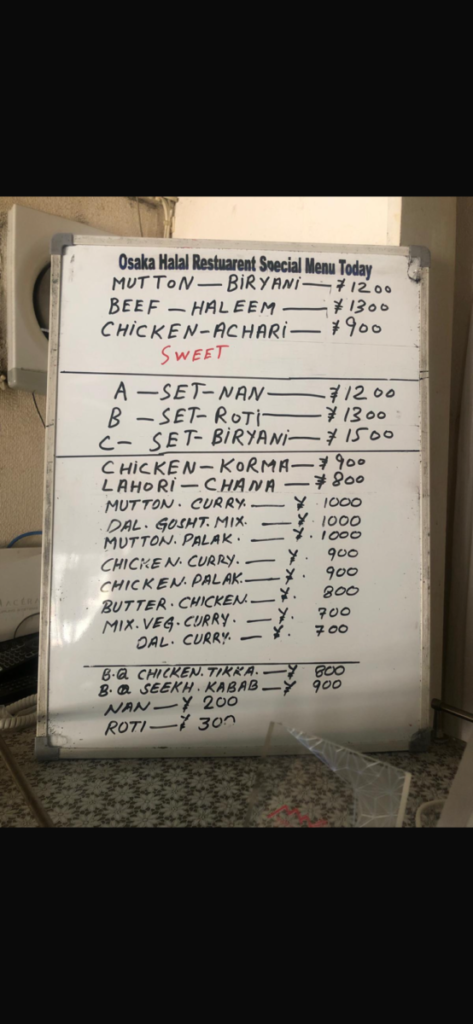 Osaka Halal Restuarent Special Menu Today
MUTTON — BIRYANI — ¥1200
BEEF — HALEEM — ¥1300
CHICKEN-ACHARI — ¥900
SWEET
A — SET-NAN — ¥1200
B — SET-ROTI — ¥1300
C- SET-BIRYANI — ¥1500
CHICKEN — KORMA — ¥900
LAHORI — CHANA — ¥800
MUTTON. CURRY. — ¥ 1000
DAL. GOSHT. MIX. — ¥ 1000
MUTTON. PALAK. — ¥. 1000
CHICKEN. CURRY. — ¥. 900
CHICKEN. PALAK. — ¥. 900
BUTTER. CHICKEN. — ¥. 800
MIX. VEG. CURRY. — ¥. 700
DAL. CURRY. — ¥. 700
B.Q CHICKEN. TIKKA. — ¥ 800
B.Q SEEKH. KABAB — ¥ 900
NAN — ¥ 200
ROTI — ¥ 300